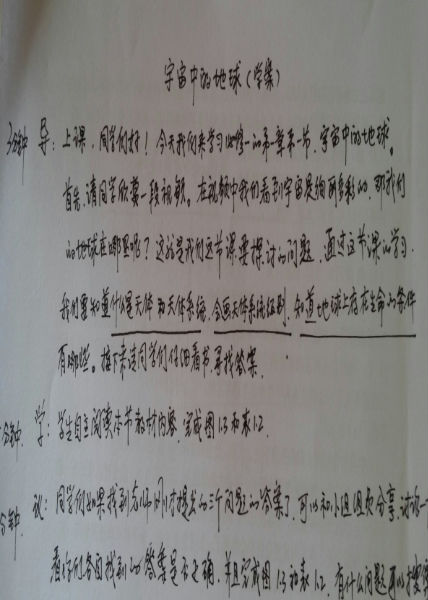 宇宙中的地球(学案)
3分钟 导:上课,同学们好!今天我们来学习必修一的第一章第一节,宇宙中的地球。
首先,请同学欣赏一段视频。在视频中我们看到宇宙是绚丽多彩的,那我们
的地球在哪里呢?这就是我们这节课要探讨的问题,通过这节课的学习,
我们要知道什么是天体和天体系统,会画天体系统级别,知道地球上存在生命的条件
有哪些。接下来请同学们仔细看书寻找答案。
分钟 学:学生自主阅读本节教材内容,完成图1.3和表1.2
分钟 议:同学们如果找到老师刚才提出的三个问题的答案了,可以和小组组员分享,讨论一
看你们各自找到的答案是否正确,并且完成图1.3和表1.2,有什么问题可以